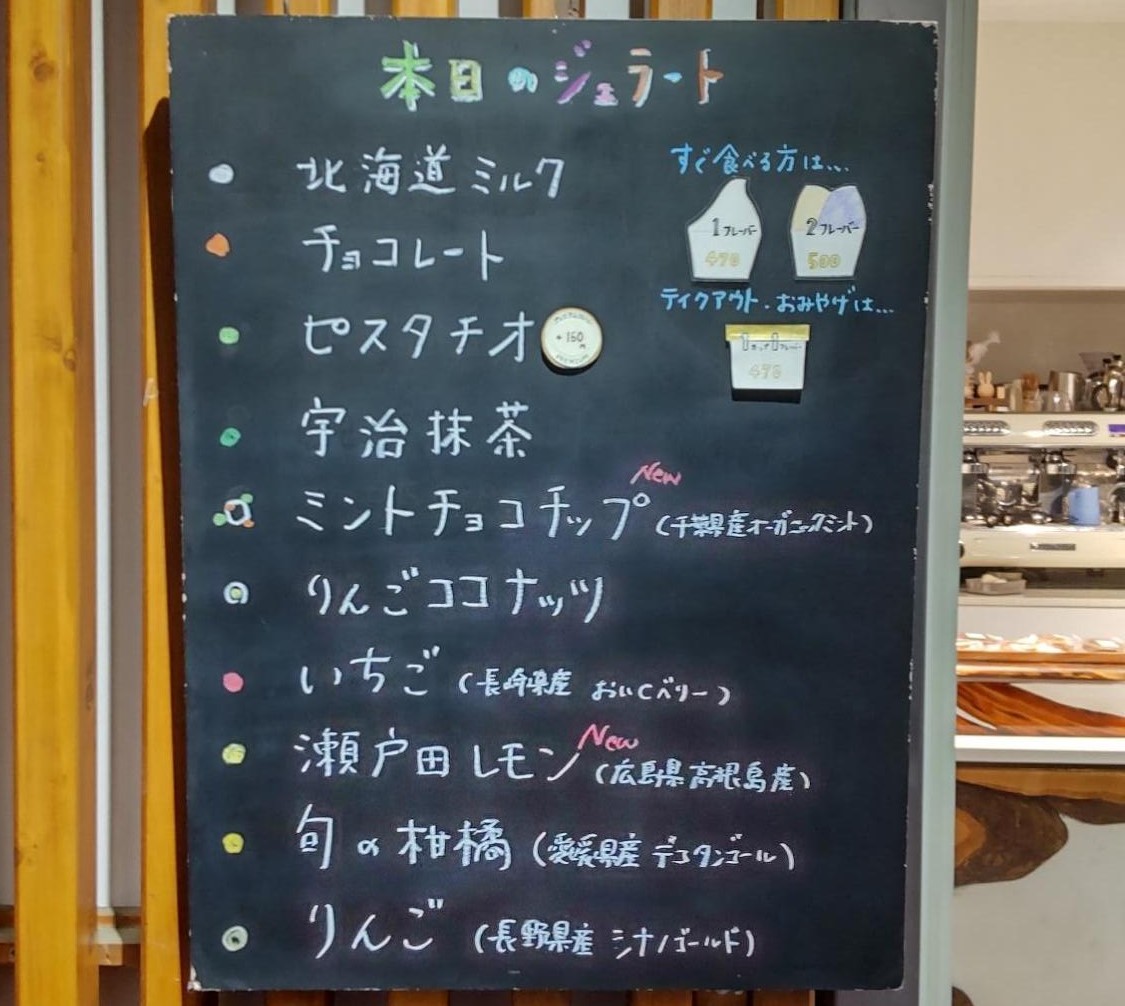 本日のジェラート
北海道ミルク
チョコレート
ピスタチオ
+150
PREMIUM
宇治抹茶
ミントチョコチップ New (千葉県産オーガニックミント)
りんごココナッツ
いちご (長崎県産 おいCベリー)
瀬戸田レモン New (広島県高根島産)
旬の柑橘 (愛媛県産 デコタンゴール)
りんご (長野県産 シナノゴールド)
すぐ食べる方は...
1フレーバー
470
2フレーバー
500
テイクアウト・おみやげは...
1カップ1フレーバー